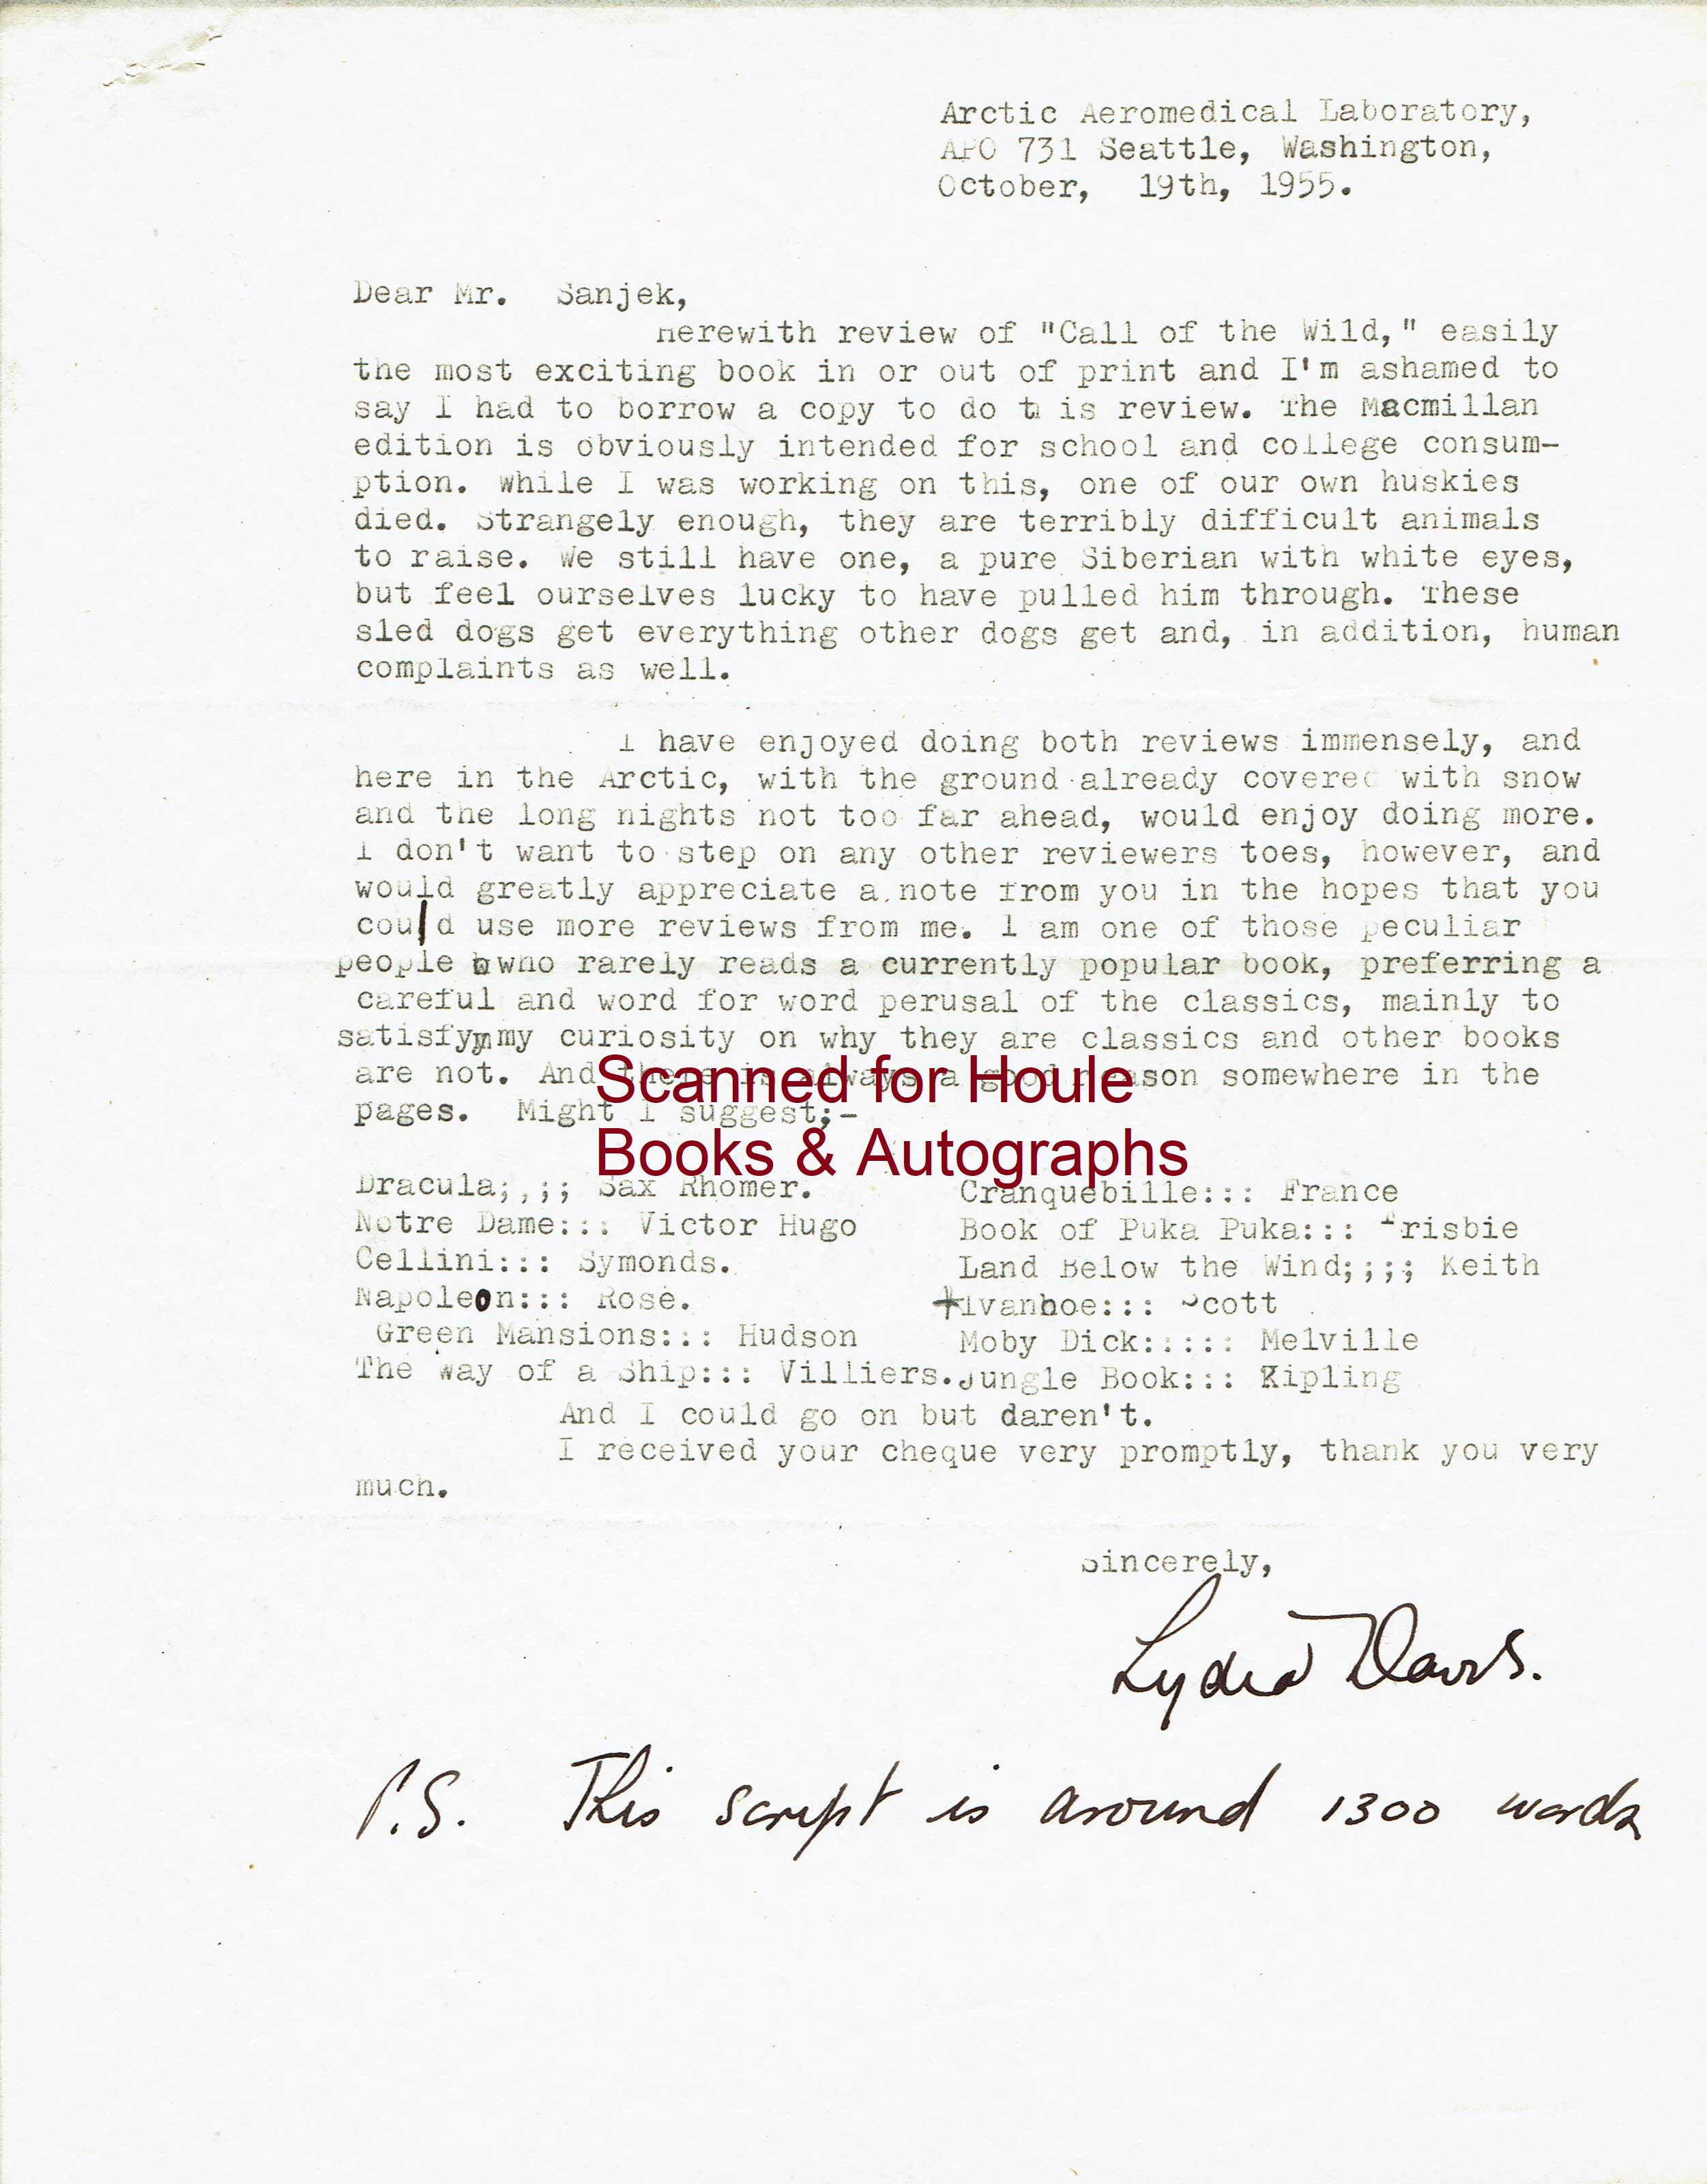 Arctic Aeromedical Laboratory,
APO 731 Seattle, Washington,
October, 19th, 1955.
Dear Mr. Sanjek,
Herewith review of "Call of the Wild," easily
the most exciting book in or out of print and I'm ashamed to
say I had to borrow a copy to do this review. The Macmillan
edition is obviously intended for school and college consum-
ption. While I was working on this, one of our own huskies
died. Strangely enough, they are terribly difficult animals
to raise. We still have one, a pure Siberian with white eyes,
but feel ourselves lucky to have pulled him through. These
sled dogs get everything other dogs get and, in addition, human
complaints as well.
I have enjoyed doing both reviews immensely, and
here in the Arctic, with the ground already covered with snow
and the long nights not too far ahead, would enjoy doing more.
I don't want to step on any other reviewers toes, however, and
would greatly appreciate a note from you in the hopes that you
could use more reviews from me. I am one of those peculiar
people who rarely reads a currently popular book, preferring a
careful and word for word perusal of the classics, mainly to
satisfy my curiosity on why they are classics and other books
are not. And there is always a good reason somewhere in the
pages. Might I suggest;-
Scanned for Houle
Books & Autographs
Dracula;,;; Sax Rhomer. Cranquebille::: France
Notre Dame::: Victor Hugo Book of Puka Puka::: Frisbie
Cellini::: Symonds. Land Below the Wind;;;; Keith
Napoleon::: Rose. +Ivanhoe::: Scott
Green Mansions::: Hudson Moby Dick::::: Melville
The Way of a Ship::: Villiers. Jungle Book::: Kipling
And I could go on but daren't.
I received your cheque very promptly, thank you very
much.
Sincerely,
Lydia Davis.
P.S. This script is around 1300 words